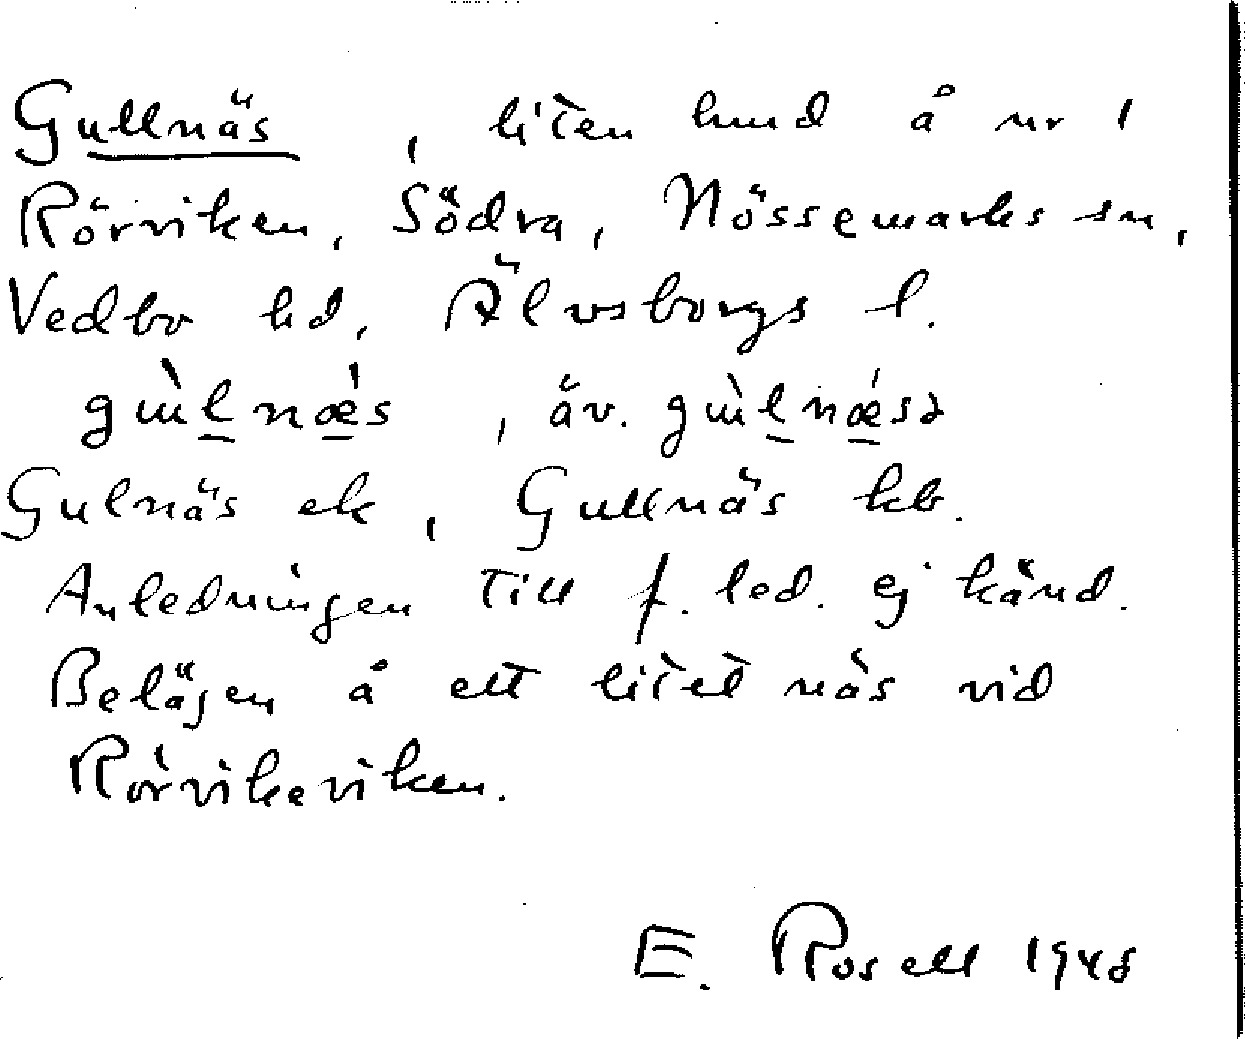 Gullnäs, liten lund å nr 1
Rörviken, Södra, Nössemarks sn,
Vedbo hd, Älvsborgs l.
gùlnǽs, äv. gùlnǽsə
Gulnäs ek, Gullnäs kb.
Anledningen till f. led. ej känd.
Belägen å ett litet näs vid
Rörvikeviken.
E. Rosell 1948